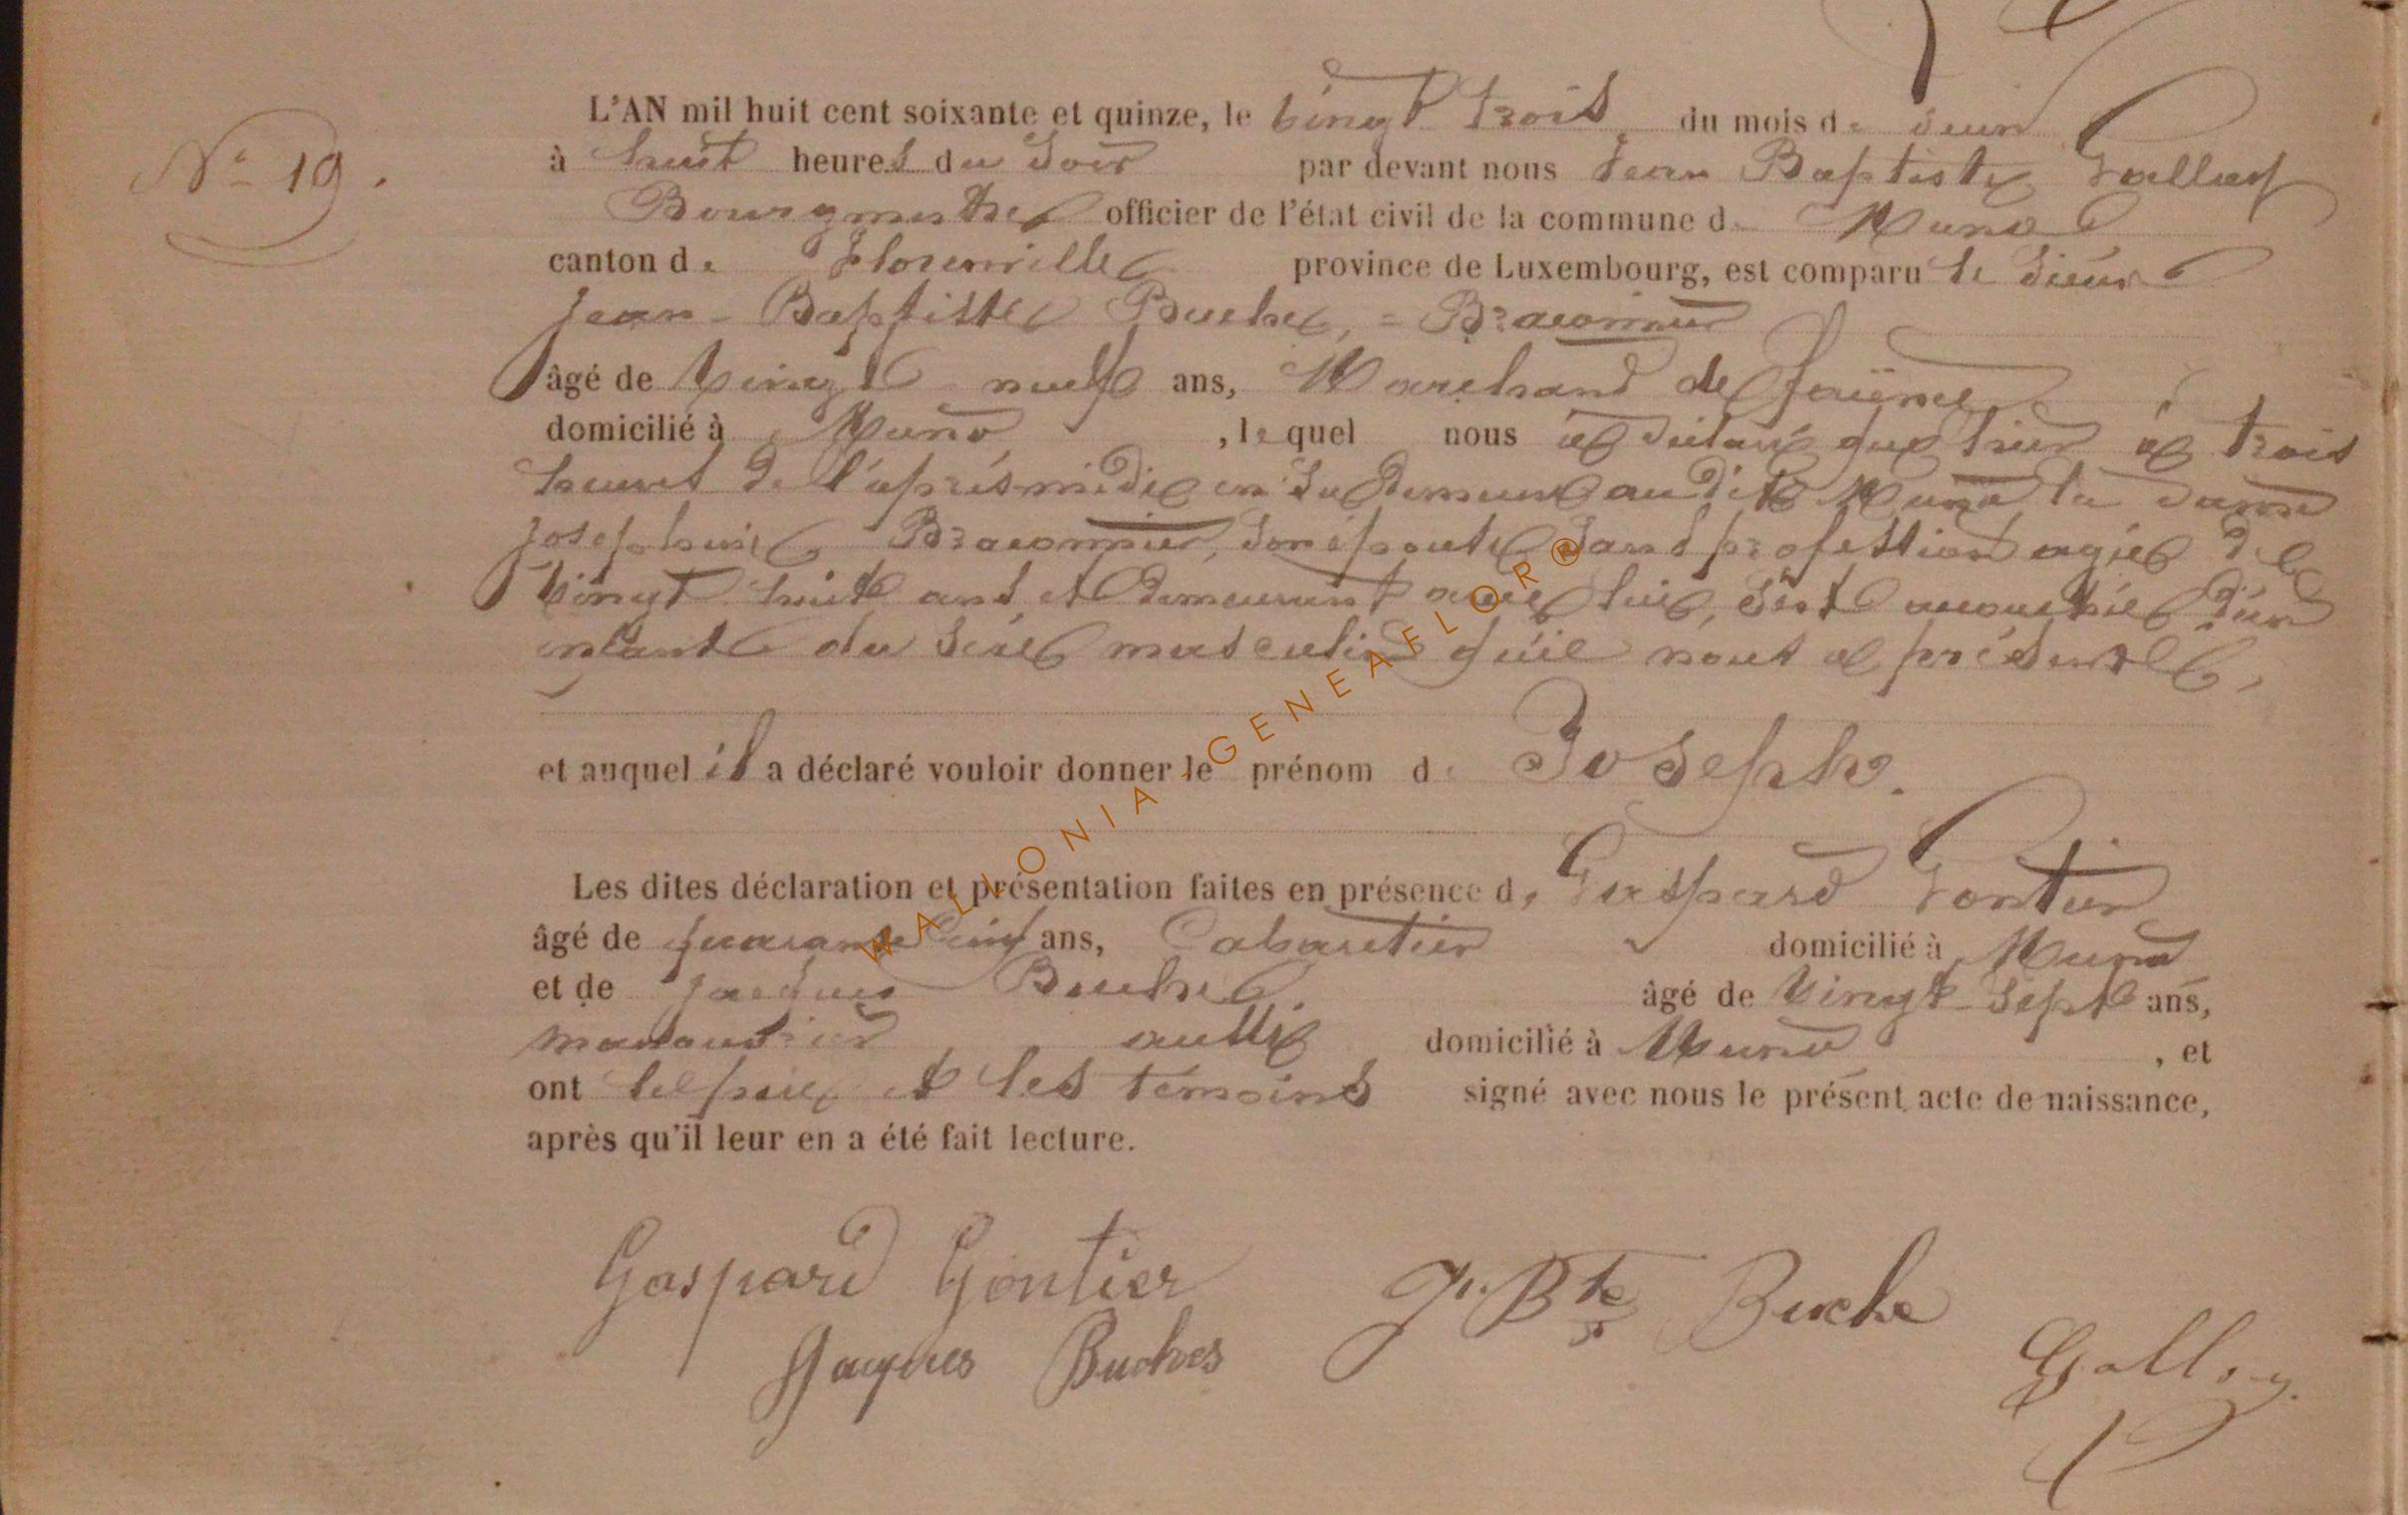 N° 19.
L'AN mil huit cent soixante et quinze, le vingt trois du mois de Juin
à huit heures du soir par devant nous Jean Baptiste
Bourgmestre officier de l'état civil de la commune de Muno
canton de Florenville province de Luxembourg, est comparu le sieur
Jean-Baptiste Buche, = Braconnier
âgé de vingt neuf ans, Marchand de faïence
domicilié à Muno, lequel nous a déclaré que hier à trois
heures de l'après midi en sa demeure audit Muno la dame
Josephine Braconnier, son épouse sans profession agée de
vingt huit ans et demeurant avec lui, s'est accouchée d'un
enfant du sexe masculin qu'il nous a présenté,
et auquel il a déclaré vouloir donner le prénom de Joseph.
Les dites déclaration et présentation faites en présence de Gaspard Gontier
âgé de quarante cinq ans, Cabaretier domicilié à Muno
et de Jacques Buche. âgé de vingt sept ans,
manouvrier aussi domicilié à Muno, et
ont le père et les témoins signé avec nous le présent acte de naissance,
après qu'il leur en a été fait lecture.
Gaspard Gontier
J. Bte Buche
Jacques Buches
WALLONIA GENEAFLOR®